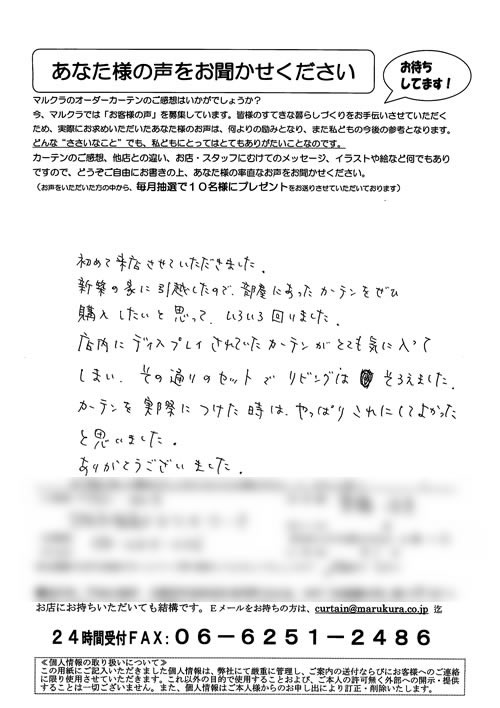 あなた様の声をお聞かせください
お待ち
してます！
マルクラのオーダーカーテンのご感想はいかがでしょうか？
今、マルクラでは「お客様の声」を募集しています。皆様のすてきな暮らしづくりをお手伝いさせていただく
ため、実際にお求めいただいたあなた様のお声は、何よりの励みとなり、また私どもの今後の参考となります。
どんな“ささいなこと”でも、私どもにとってはとてもありがたいことなのです。
カーテンのご感想、他店との違い、お店・スタッフにむけてのメッセージ、イラストや絵など何でもあり
ですので、どうぞご自由にお書きの上、あなた様の率直なお声をお聞かせください。
（お声をいただいた方の中から、毎月抽選で１０名様にプレゼントをお送りさせていただいております）
初めて来店させていただきました。
新築の家に引越したので、部屋にあったカーテンをぜひ
購入したいと思って、いろいろ回りました。
店内にディスプレイされていたカーテンがとても気に入って
しまい、その通りのセットでリビングは そろえました。
カーテンを実際につけた時は、やっぱりこれにしてよかった
と思いました。
ありがとうございました。
お店にお持ちいただいても結構です。Ｅメールをお持ちの方は、curtain@marukura.co.jp 迄
２４時間受付FAX：０６－６２５１－２４８６
≪個人情報の取り扱いについて≫
この用紙にご記入いただきました個人情報は、弊社にて厳重に管理し、ご案内の送付ならびにお客様へのご連絡
に限り使用させていただきます。これ以外の目的で使用することおよび、ご本人の許可無く外部への開示・提供
することは一切ございません。また、個人情報はご本人様からのお申し出により訂正・削除いたします。